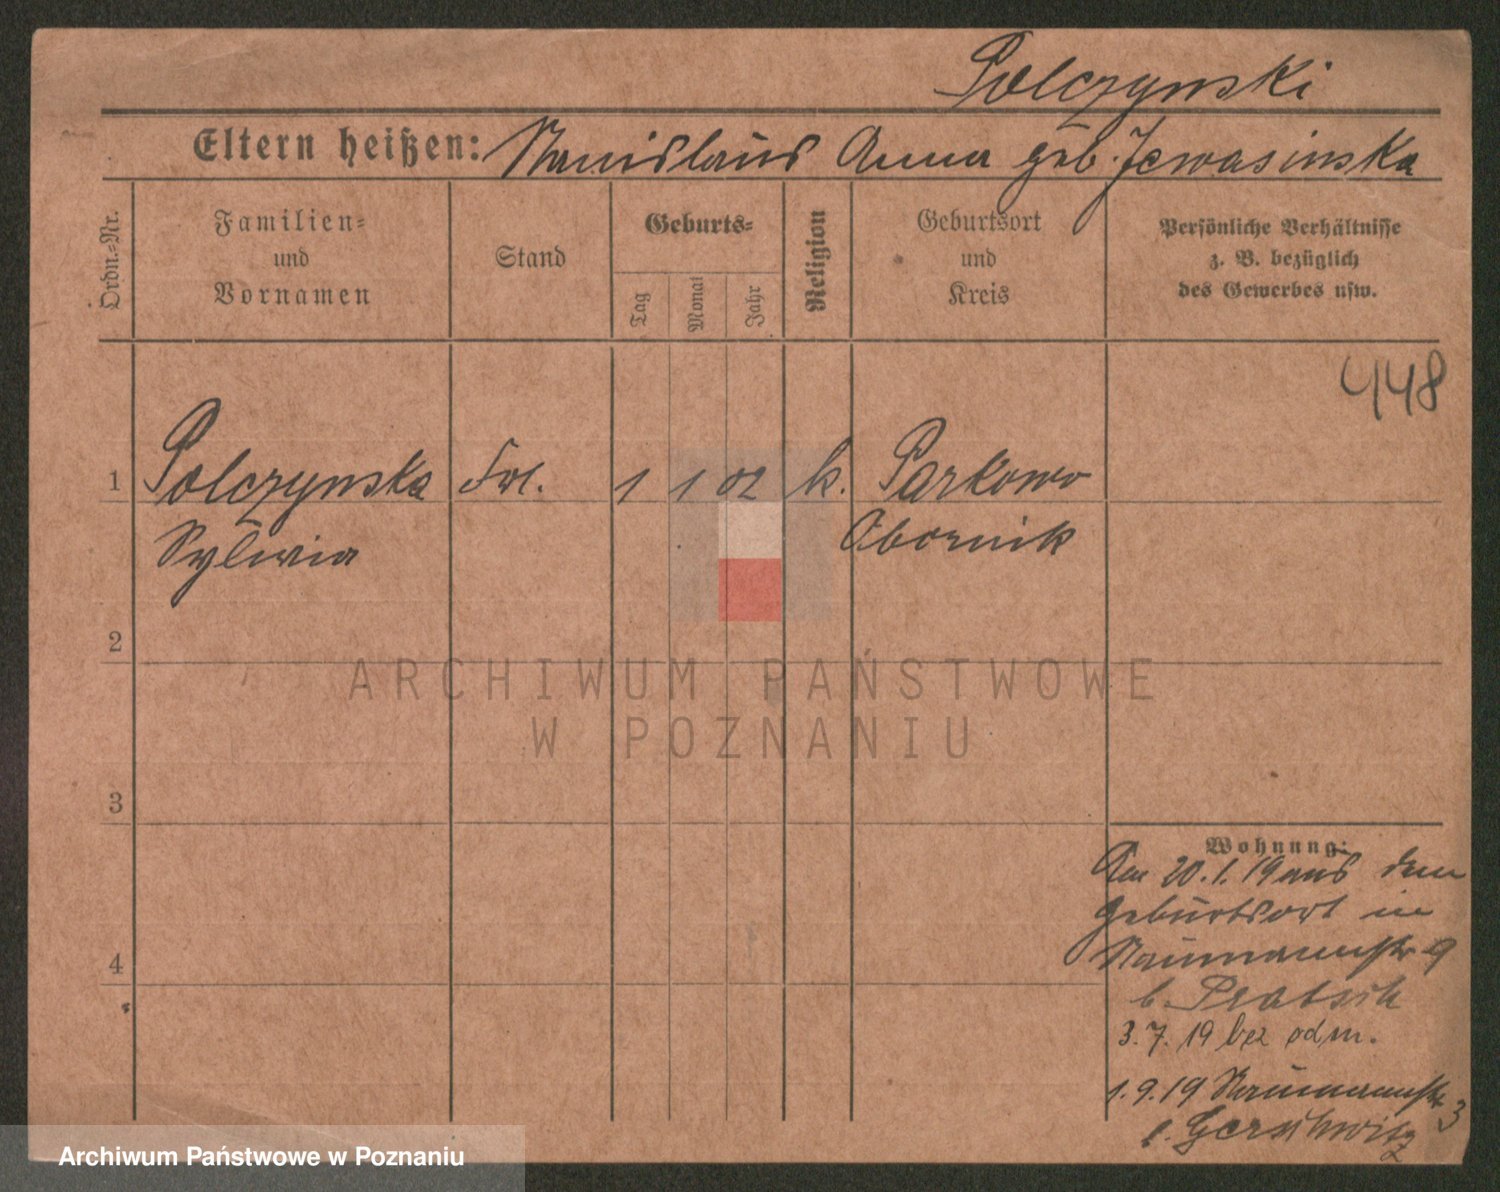 Polczynski
Eltern heißen: Stanislaus Anna geb. Jewasinska
Ordn.-Nr.
Familien-
und
Vornamen
Stand
Geburts-
Tag
Monat
Jahr
Religion
Geburtsort
und
Kreis
Persönliche Verhältnisse
z. B. bezüglich
des Gewerbes usw.
448
1 Polczynska Frl. 1 1 02 k. Parkowo
Sylwia Obornik
2
ARCHIWUM PAŃSTWOWE
W POZNANIU
3
Wohnung:
Am 20.1.19 aus dem
Geburtsort in
Naumannstr 9
4
b. Pratsch
3.7.19 bez odm.
1.9.19 Naumannstr 3
b. Gerschwitz
Archiwum Państwowe w Poznaniu